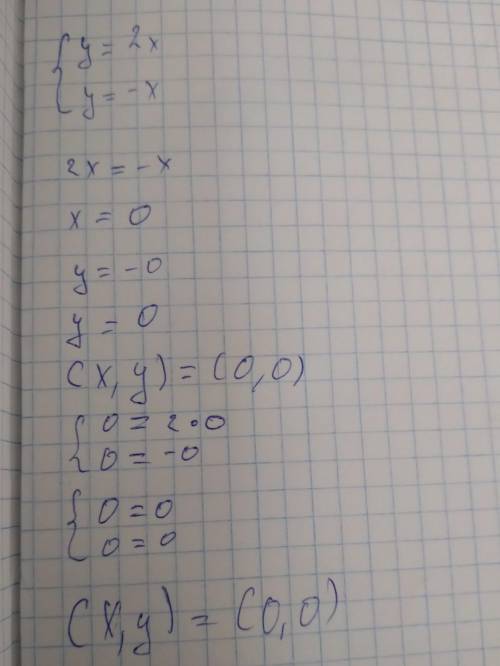 { y = 2x
{ y = -x
2x = -x
x = 0
y = -0
y = 0
(x, y) = (0, 0)
{ 0 = 2·0
{ 0 = -0
{ 0 = 0
{ 0 = 0
(x, y) = (0, 0)